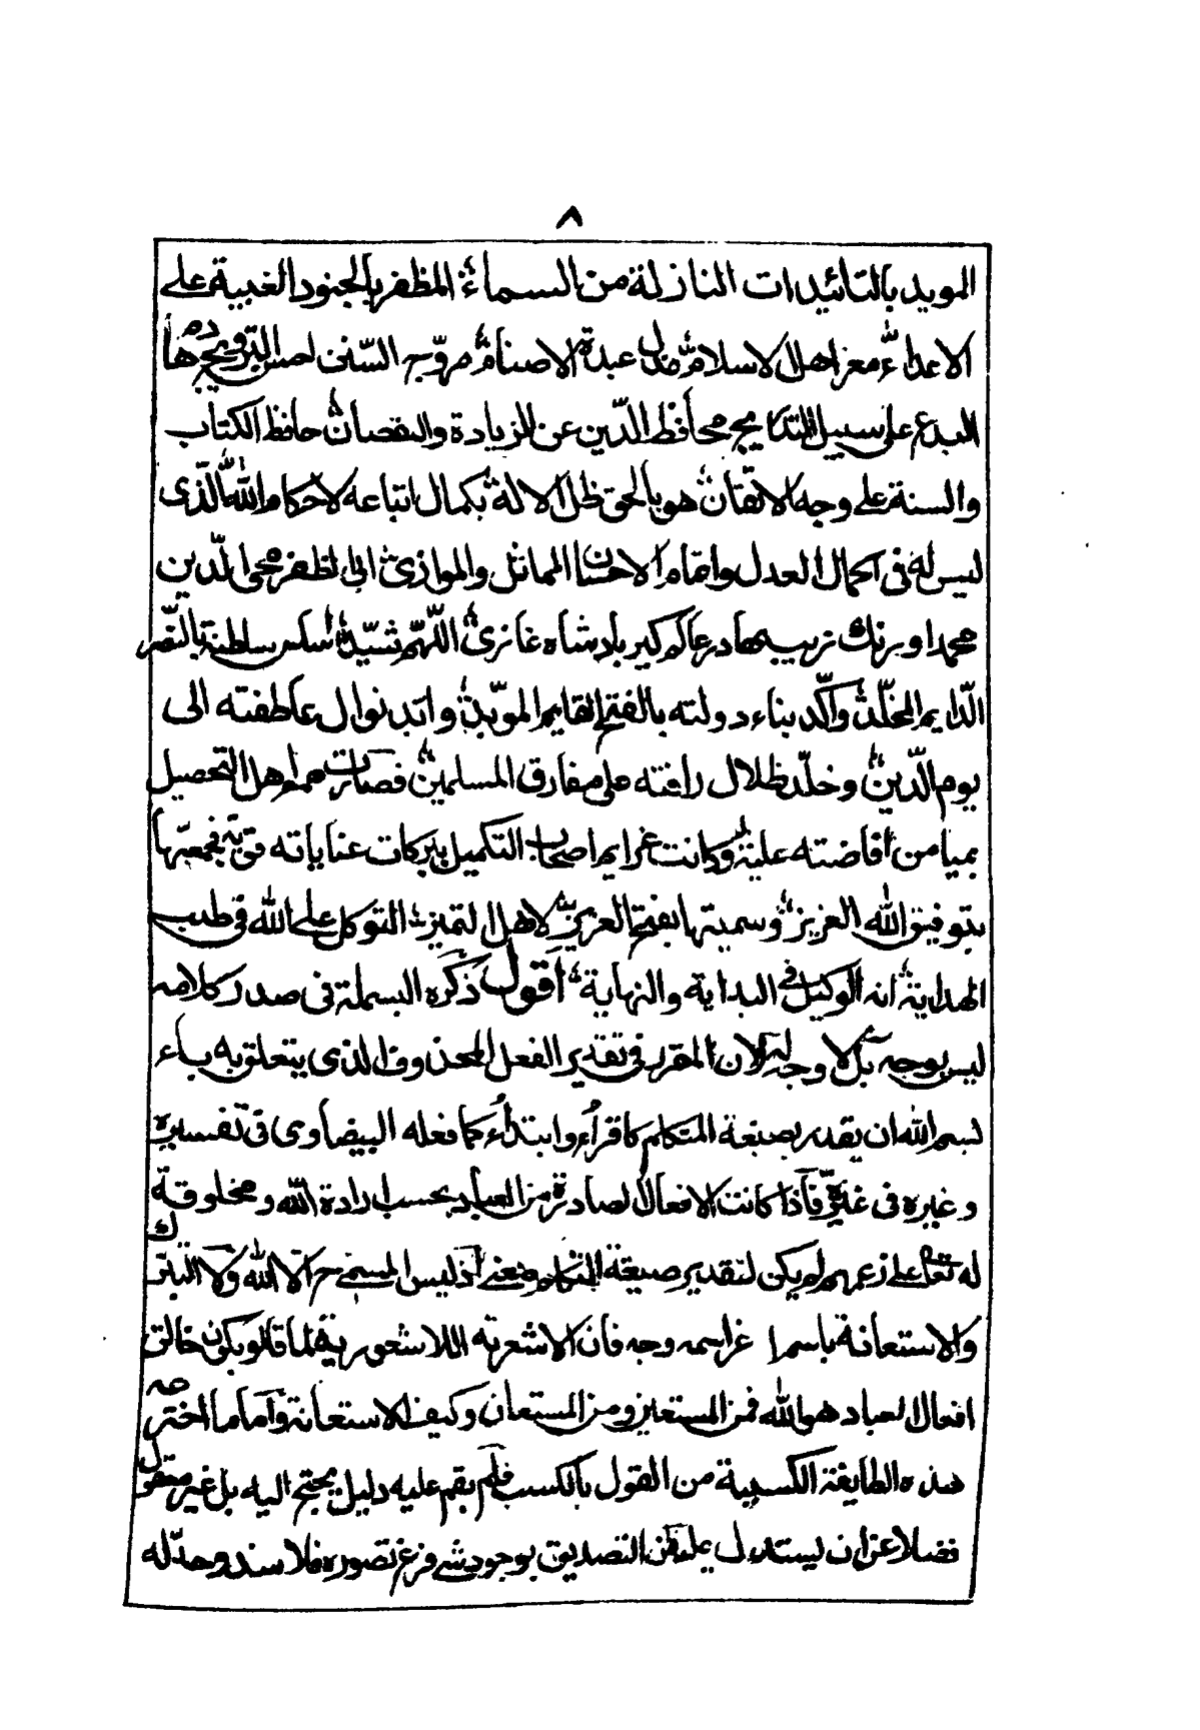 ٨
المويد بالتائيدات النازلة من السماء المظفر بالجنود الغيبية على
الاعداء معز اهل الاسلام مذل عبدة الاصنام مروّج السّنن احسن الترويج هادم
البدع على سبيل التدامج محافظ الدّين عن الزيادة والنقصان حافظ الكتاب
والسنة على وجه الاتقان هو بالحق ظل الاله بكمال اتباعه لاحكام الله الّذى
ليس له فى اكمال العدل واتمام الاحسان المماثل والموازى ابي الظفر محى الدّين
محمد اورنك زيب بهادر عالم كير بادشاه غازى اللّهمّ شيّد اساس سلطنة بالنّصر
الدّايم المخلّد واكّد بناء دولته بالفتح القايم الموّبد وابد نوال عاطفته الى
يوم الدّين وخلّد ظلال رافته على مفارق المسلمين فصارت همم اهل التحصيل
بميامن افاضته علية وكانت غرايم اصحاب التكميل ببركات عناياته قوية فجمعتها
بتوفيق الله العزيز وسميتها بفتح العزيز لاهل التميز التوكل على الله فى طلب
الهداية انه الوكيل فى البداية والنهاية اقول ذكره البسملة فى صدر كلامه
ليس بوجه بل لا وجه له لان المقرر فى تقدير الفعل المحذوف الذى يتعلق به باء
بسم الله ان يقدر بصيغة المتكلم كاقرأ وابتدأ كما فعله البيضاوى فى تفسيره
وغيره فى غيره فاذا كانت الافعال الصادرة من العباد بحسب ارادة الله ومخلوقة
له تعالى على زعمهم لم يكن لتقدير صيغة المتكلم معنى اذ ليس المسمى ح الا الله ولا التبرك
والاستعانة باسم غراسمه وجه فان الاشعرته اللاشعورية لما قالو بكون خالق
افعال العباد هو الله فمن المستعين ومن المستعان وكيف الاستعانة واما ما اخترعه
هذه الطايفة الكسبية من القول بالكسب فلم يقم عليه دليل يحتج اليه بل غير معقول
فضلا عن ان يستدل عليه فان التصديق بوجود شى فرع تصوره فلا سند وحدّ له